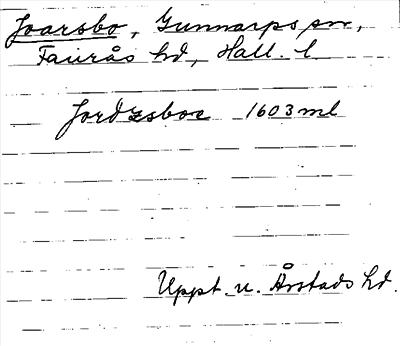 Joarsbo, Gunnarps sn,
Faurås hd, Hall. l
1603 ml
Uppt. u. Årstads hd.